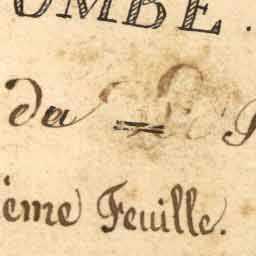 OMBE.
da
ième Feuille.